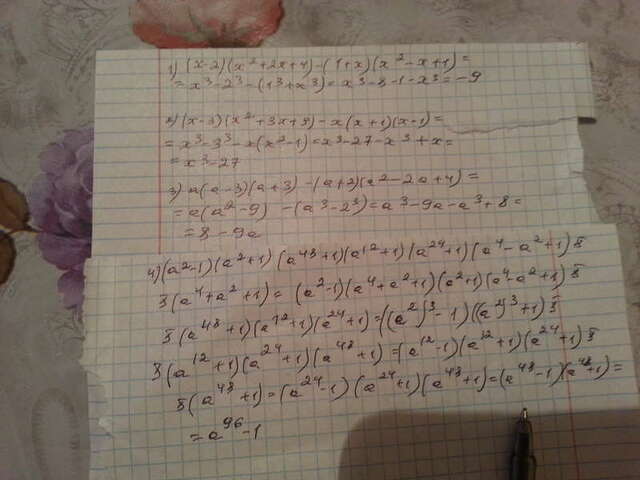 1) (x-2)(x²+2x+4)-(1+x)(x²-x+1)=
=x³-2³-(1³+x³)=x³-8-1-x³=-9
2) (x-3)(x²+3x+9)-x(x+1)(x-1)=
=x³-3³-x(x²-1)=x³-27-x³+x=
=x³-27
3) a(a-3)(a+3)-(a+2)(a²-2a+4)=
=a(a²-9)-(a³-2³)=a³-9a-a³+8=
=8-9a
4) (a²-1)(a²+1)(a⁴⁸+1)(a¹²+1)(a²⁴+1)(a⁴-a²+1)
(a⁴+a²+1)=(a²-1)(a⁴+a²+1)(a²+1)(a⁴-a²+1)
(a⁴⁸+1)(a¹²+1)(a²⁴+1)=((a²)³-1)((a²)³+1)
(a¹²+1)(a²⁴+1)(a⁴⁸+1)=(a¹²-1)(a¹²+1)(a²⁴+1)
(a⁴⁸+1)=(a²⁴-1)(a²⁴+1)(a⁴⁸+1)=(a⁴⁸-1)(a⁴⁸+1)=
=a⁹⁶-1